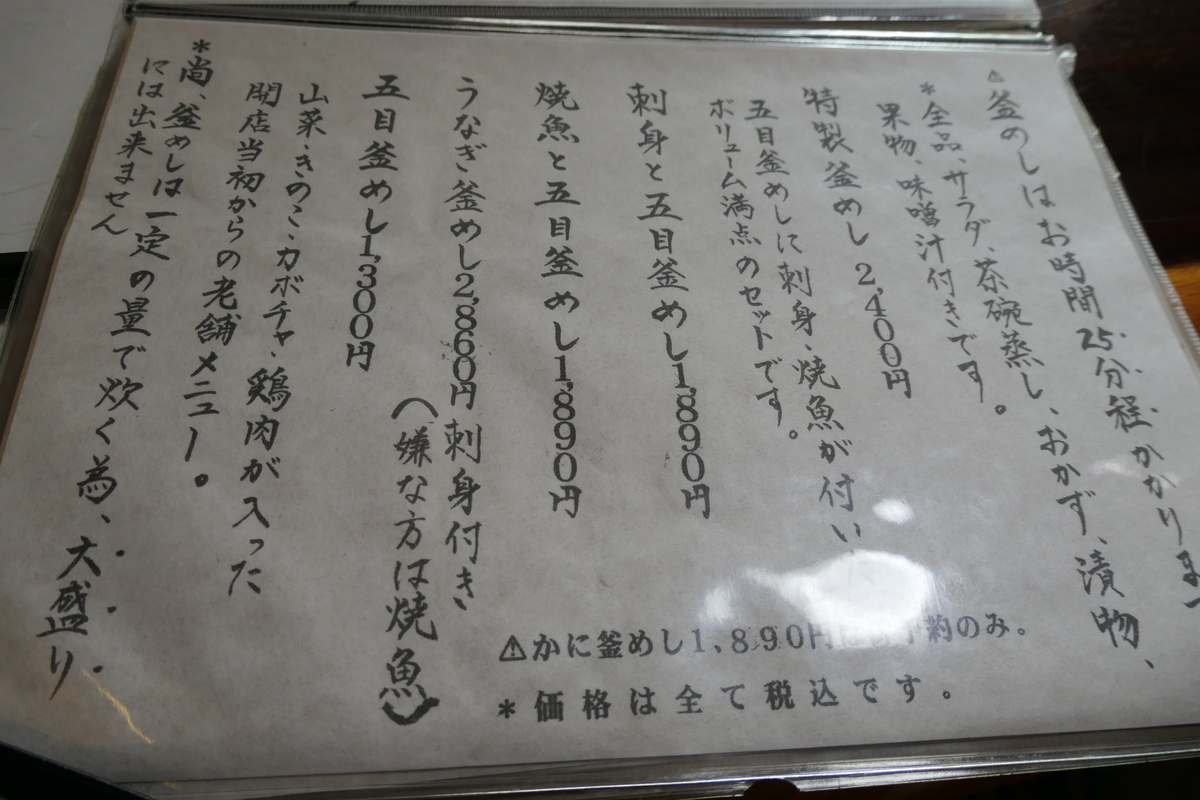 ⚠釜めしはお時間25分程かかりま
*全品、サラダ、茶碗蒸し、おかず、漬物、
果物、味噌汁付きです。
特製釜めし 2,400円
五目釜めしに刺身、焼魚が付い
ボリューム満点のセットです。
刺身と五目釜めし1,890円
焼魚と五目釜めし1,890円
うなぎ釜めし2,860円 刺身付き
(嫌な方は焼魚)
五目釜めし1,300円
山菜、きのこ、カボチャ、鶏肉が入った
開店当初からの老舗メニュー。
*尚、釜めしは一定の量で炊く為、大盛り
には出来ません
⚠かに釜めし1,890円 約のみ。
*価格は全て税込です。